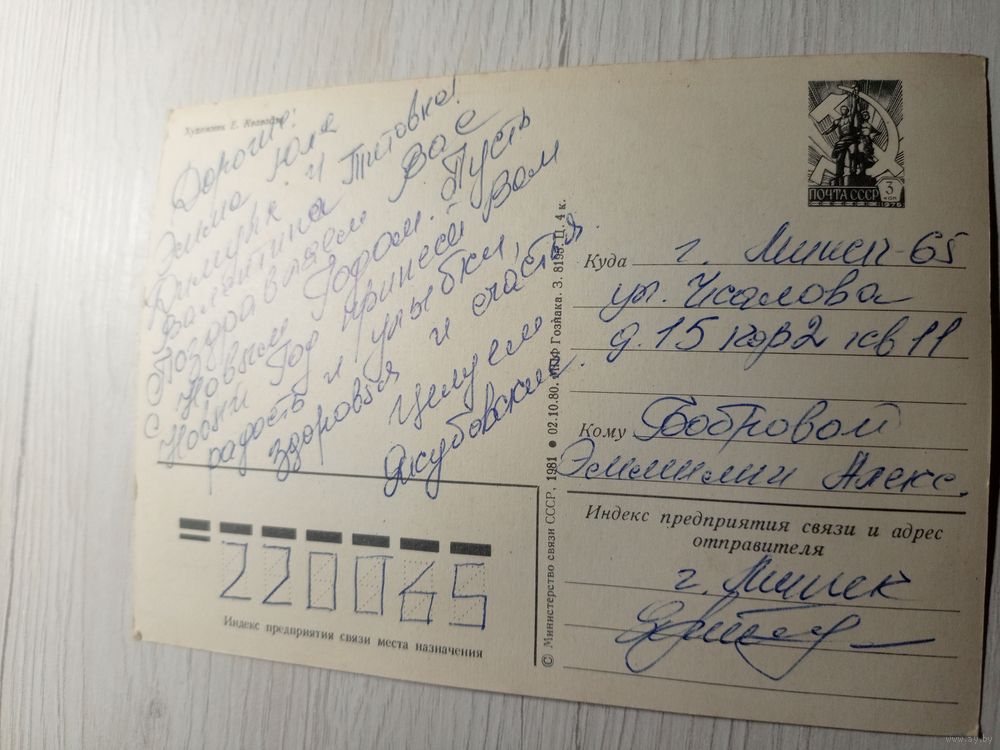 Художник Е. Квавадзе
Дорогие!
Эмма Юля
Димчик и Титовка!
Валентина Вас
Поздравляем
С Новым Годом. Пусть
Новый Год принесёт Вам
радость и улыбки,
здоровья и счастья.
Целуем
Якубовские.
220065
Индекс предприятия связи места назначения
© Министерство связи СССР, 1981 ● 02.10.80. МПФ Гознака. З. 8198. Ц. 4 к.
ПОЧТА СССР
3
КОП
1976
Куда г. Минск-65
ул. Чкалова
д. 15 кор 2 кв 11
Кому Бобровой
Эмилии Алекс.
Индекс предприятия связи и адрес
отправителя
г. Минск
www.ay.by